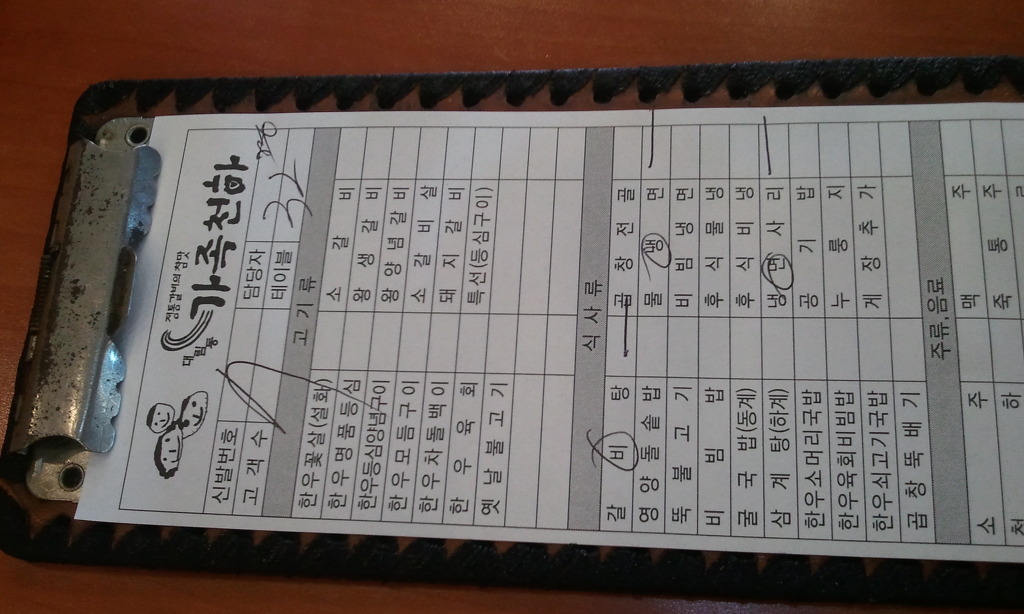 정통갈비의 참맛
대림동 가족천하
신발번호 담당자
고객수 테이블 32
고기류
한우꽃살(설화) 소갈비
한우명품등심 왕생갈비
한우등심양념구이 왕양념갈비
한우모듬구이 소갈비실
한우차돌백이 돼지갈비
한우육회 특선(등심구이)
옛날불고기
식사류
갈비탕 곱창전골
영양돌솥밥 물냉면
뚝불고기 비빔냉면
비빔밥 후식물냉
굴국밥(동계) 후식비냉
삼계탕(하계) 냉면사리
한우소머리국밥 공기밥
한우육회비빔밥 누룽지
한우쇠고기국밥 게장추가
곱창뚝배기
주류,음료
소주 맥주